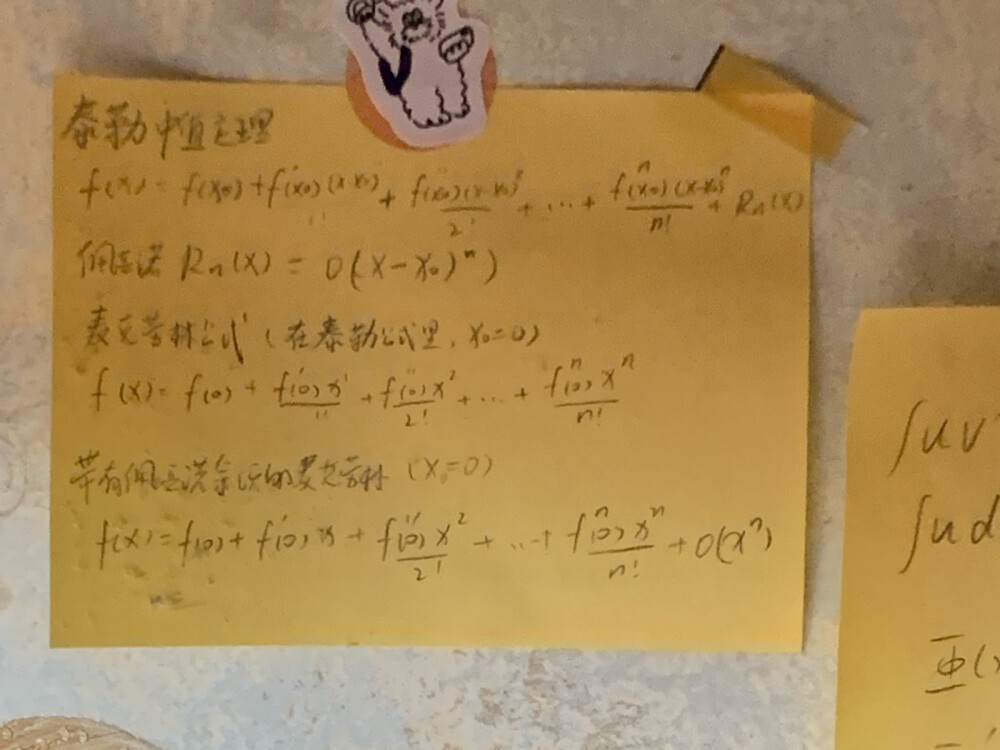 泰勒中值定理
f(x) = f(x₀) + f'(x₀)(x-x₀) + f''(x₀)(x-x₀)²/2! + … + fⁿ(x₀)(x-x₀)ⁿ/n! + Rn(x)
佩亚诺 Rn(x) = o((x-x₀)ⁿ)
麦克劳林公式 (在泰勒公式里, x₀=0)
f(x) = f(0) + f'(0)x/1! + f''(0)x²/2! + … + fⁿ(0)xⁿ/n!
带有佩亚诺余项的麦克劳林 (x₀=0)
f(x) = f(0) + f'(0)x + f''(0)x²/2! + … + fⁿ(0)xⁿ/n! + o(xⁿ)
∫uv'
∫ud